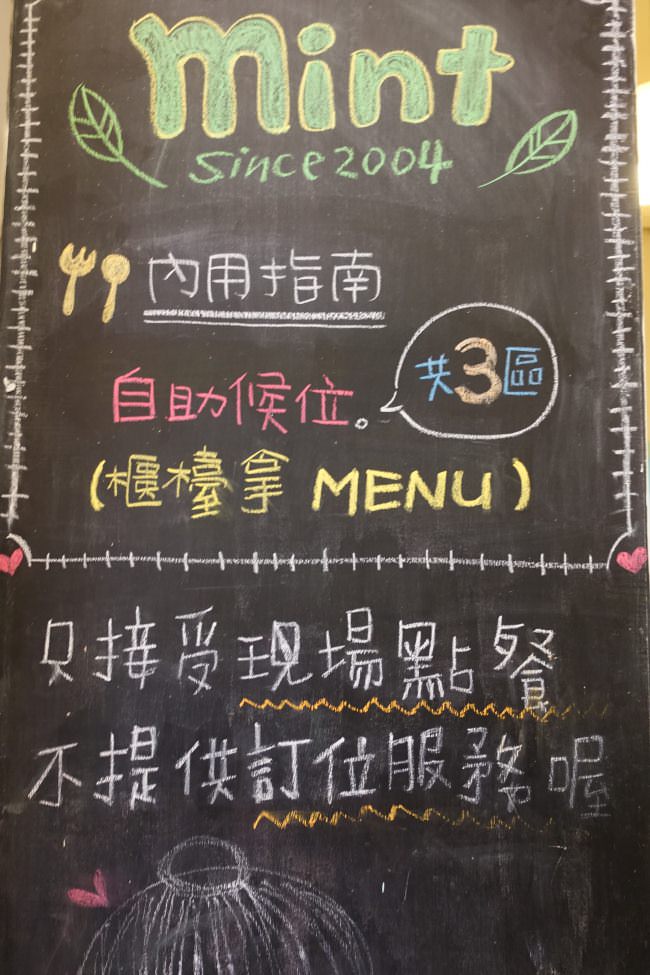 mint
since 2004
內用指南
共3區
自助候位。
(櫃檯拿 MENU)
只接受現場點餐
不提供訂位服務喔